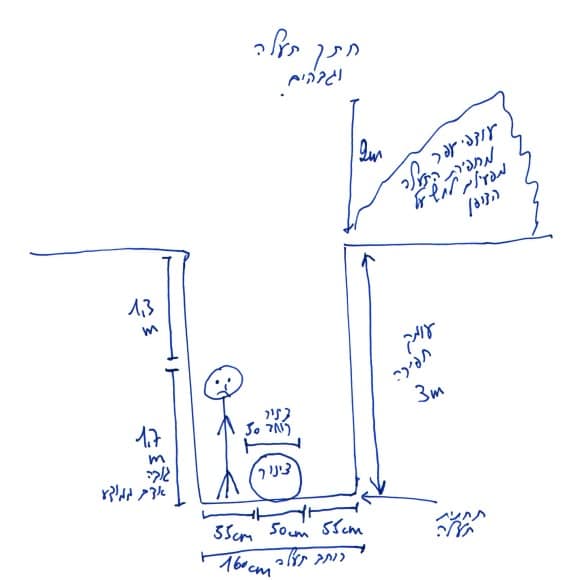 חתך תעלה
וגבהים
2m
עודפי עפר
מחפירת התעלה
מפעילים לחץ על
הדופן
1,3
m
עומק
חפירה
3m
1,7
m
גובה
אדם ממוצע
קוטר 50
צינור
55cm 50cm 55cm
רוחב תעלה 160cm
תחתית
תעלה